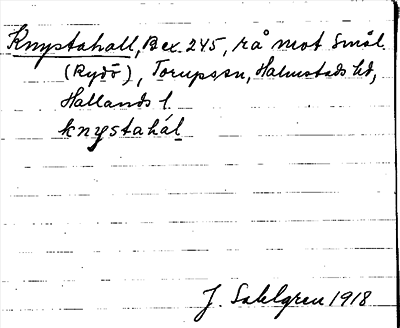 Knystahall, Bex. 245, rå mot Smål.
(Rydö), Torups sn, Halmstads hd,
Hallands l.
knystahál
J. Sahlgren 1918